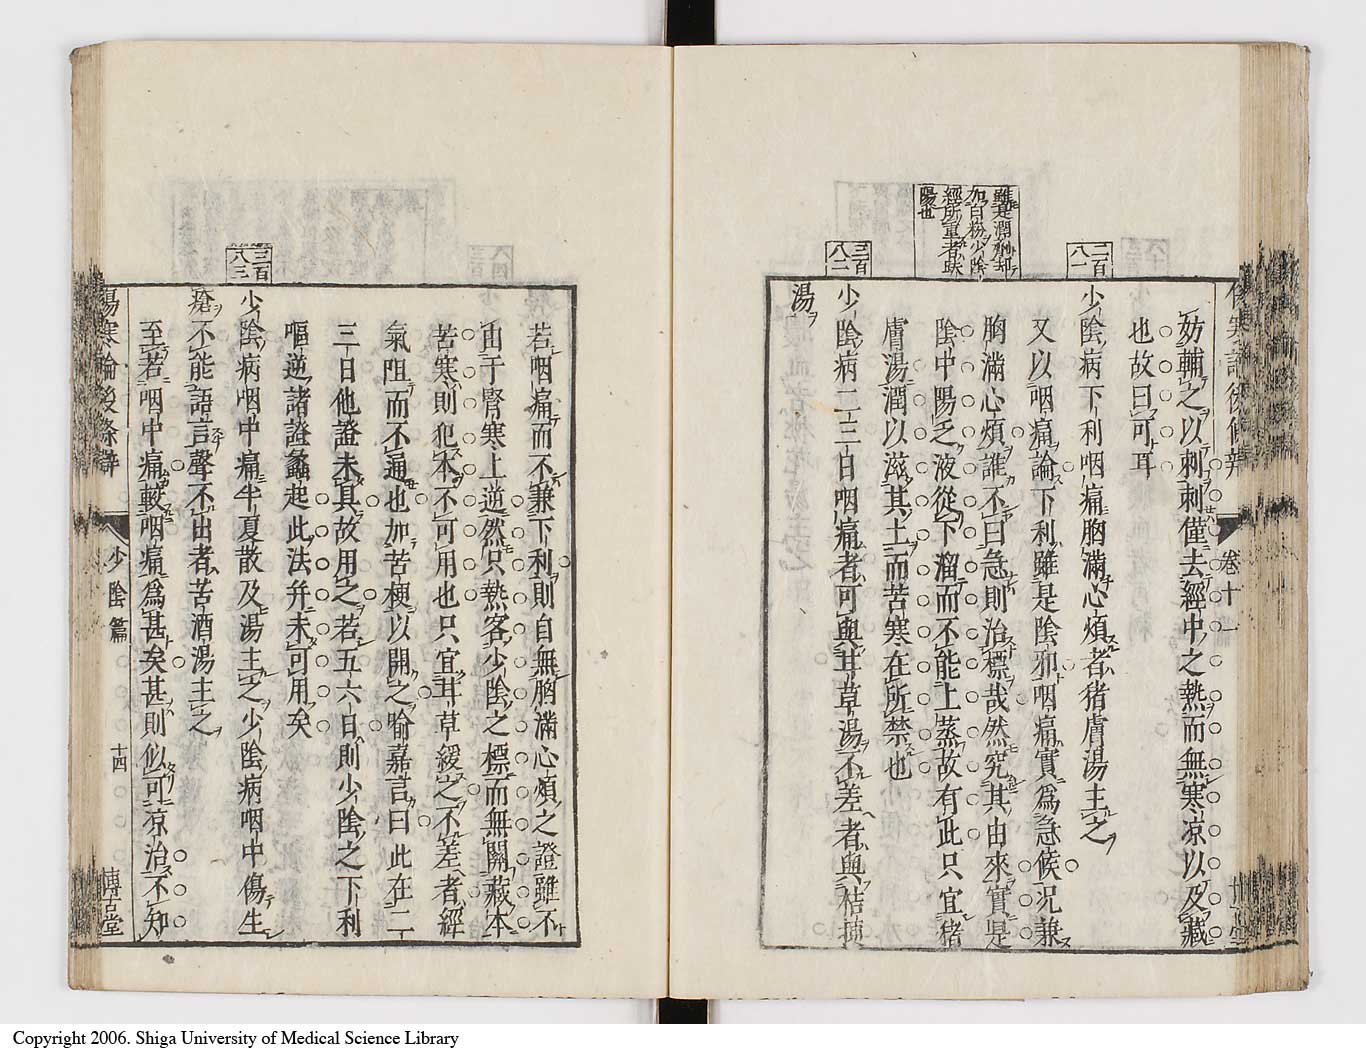 雖是潤劑却
加白粉少陰
經所重者趺
陽也
妨輔之以刺刺僅去經中之熱而無寒凉以及藏
也故曰可耳
二百
八一
少陰病下利咽痛胸滿心煩者猪膚湯主之
又以咽痛論下利雖是陰邪咽痛實爲急候况兼
胸滿心煩誰不曰急則治標哉然究其由來實是
陰中陽乏液從下溜而不能上蒸故有此只宜猪
膚湯潤以滋其土而苦寒在所禁也
三百
八二
少陰病二三日咽痛者可與甘草湯不差者與桔梗
湯
卷十一
若咽痛而不兼下利則自無胸滿心煩之證雖不
由于腎寒上逆然只熱客少陰之標而無關藏本
苦寒則犯本不可用也只宜甘草緩之不差者經
氣阻而不通也加苦梗以開之喻嘉言曰此在二
三日他證未具故用之若五六日則少陰之下利
嘔逆諸證蠭起此法幷未可用矣
三百
八三
少陰病咽中痛半夏散及湯主之少陰病咽中傷生
瘡不能語言聲不出者苦酒湯主之
至若咽中痛較咽痛爲甚矣甚則似可凉治不知
傷寒論後條辨
少陰篇
十四
博古堂
Copyright 2006. Shiga University of Medical Science Library